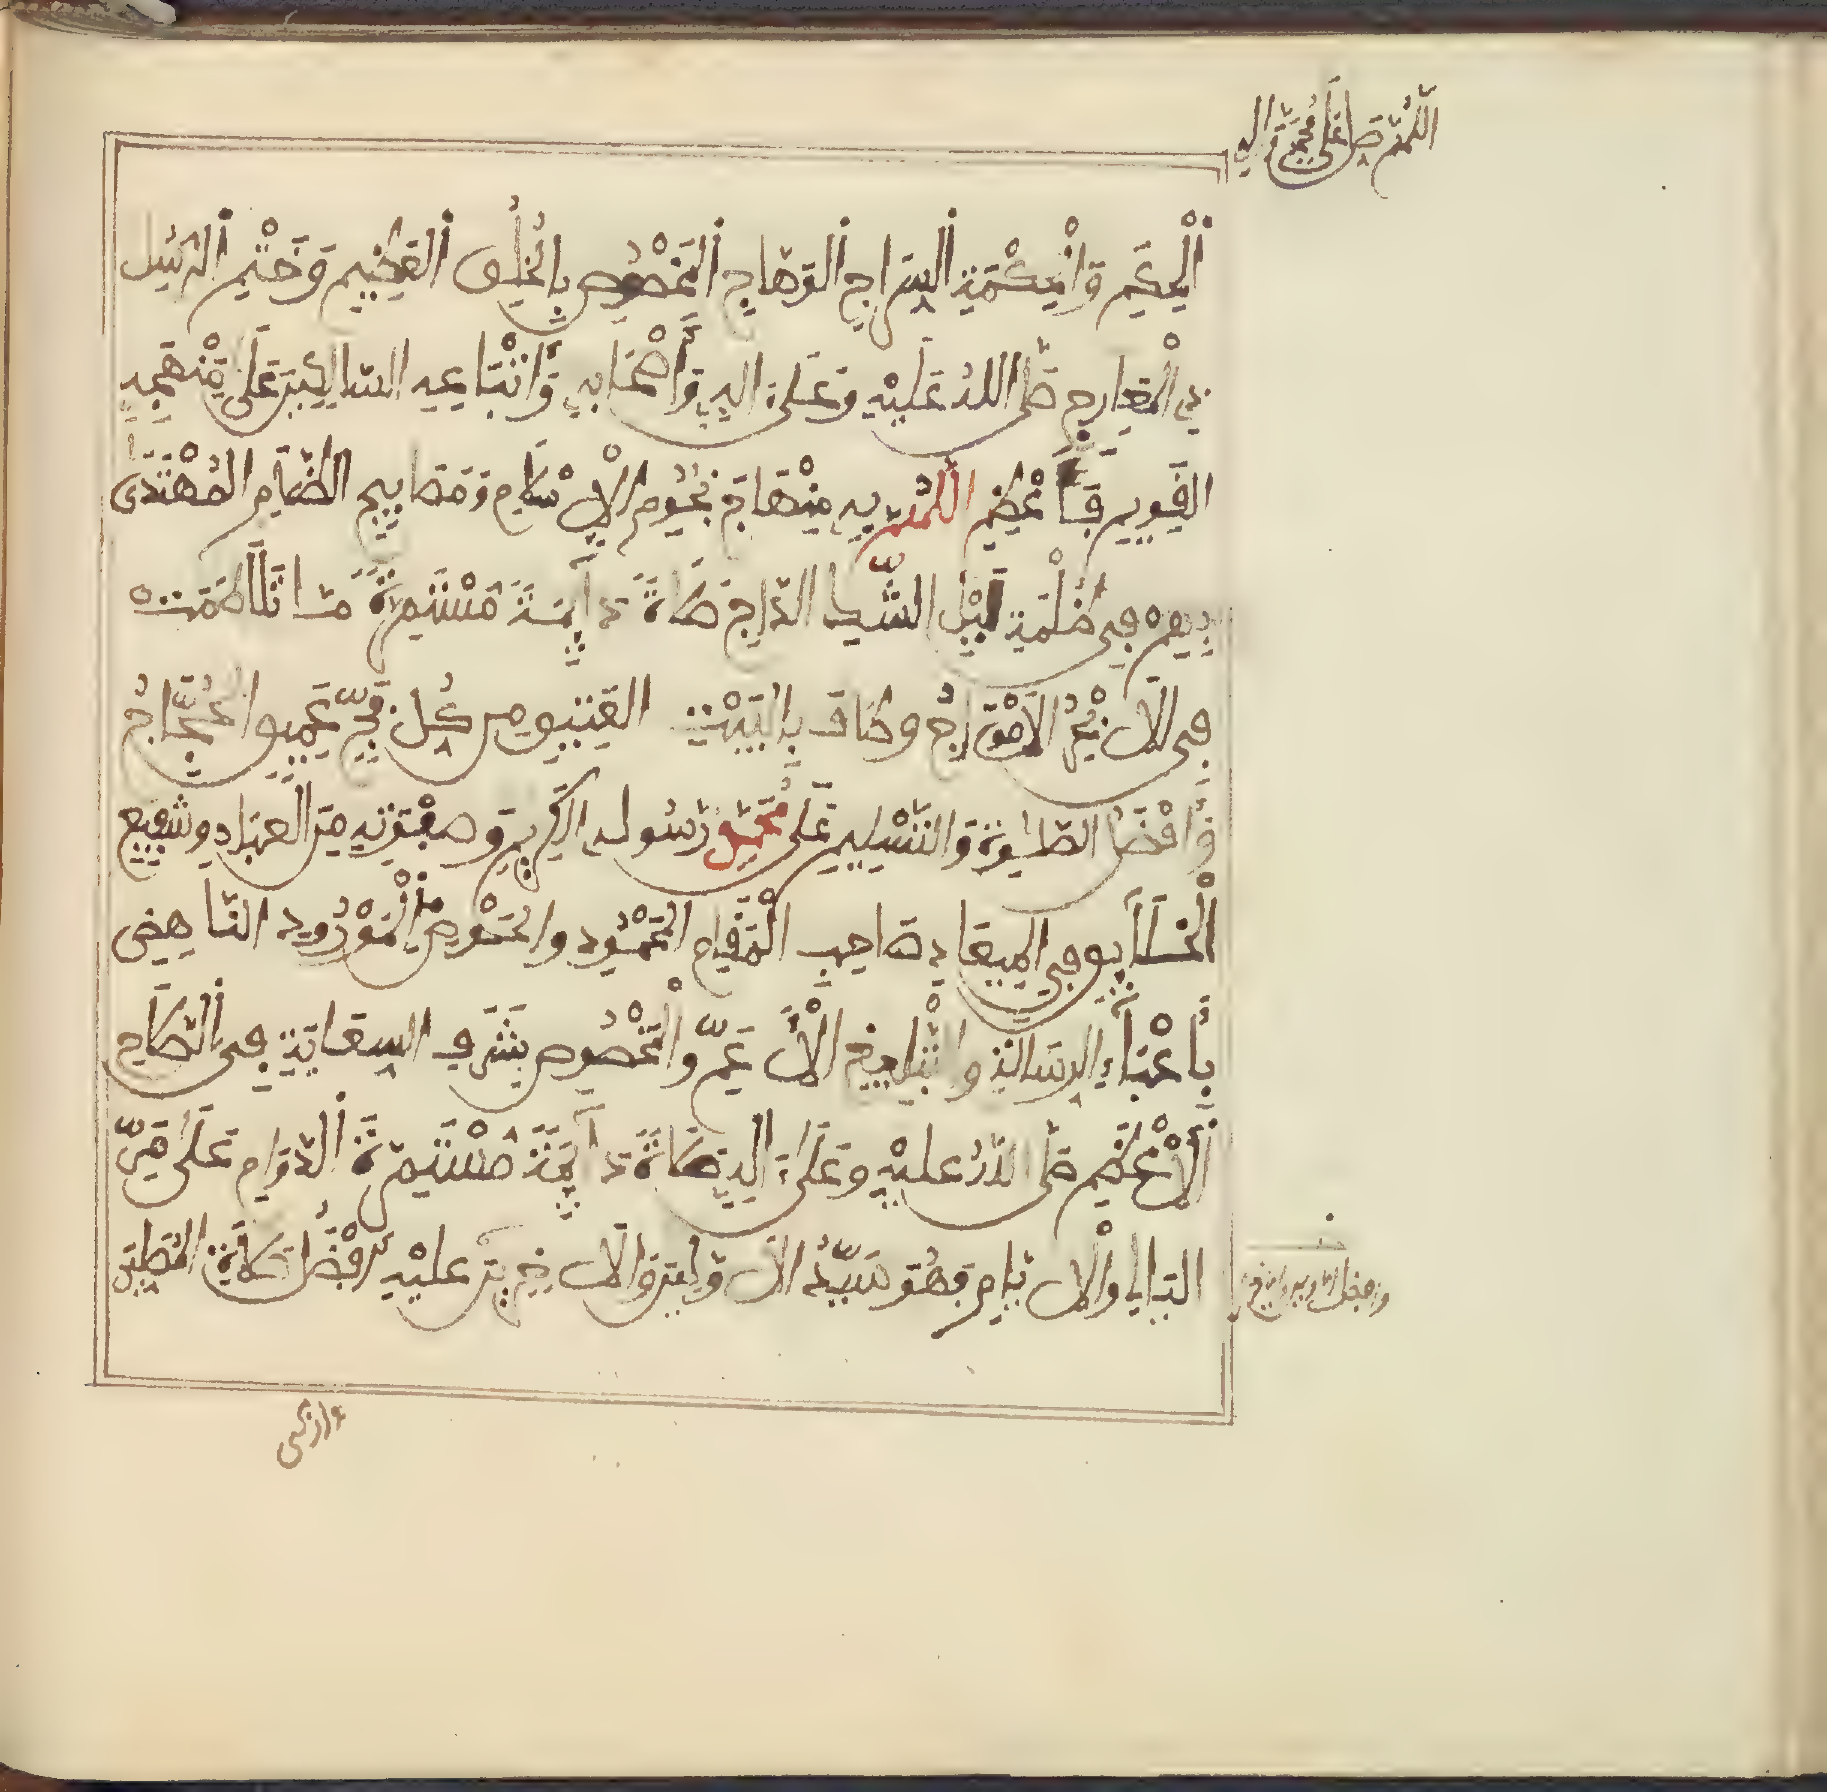 اللهم صل على محمد واله
الْحِكَمِ وَالْحِكْمَةِ السِّرَاجِ الْوَهَّاجِ الْمَخْصُوصِ بِالْخُلُقِ الْعَظِيمِ وَخَتْمِ الرُّسُلِ
ذِي الْمِعْرَاجِ صَلَّى اللهُ عَلَيْهِ وَعَلَى ءَالِهِ وَأَصْحَابِهِ وَأَتْبَاعِهِ السَّالِكِينَ عَلَى مَنْهَجِهِ
الْقَوِيمِ فَأَعْظِمِ اللَّهُمَّ بِهِ مِنْهَاجَ نُجُومِ الْإِسْلَامِ وَمَصَابِيحِ الظَّلَامِ الْمُهْتَدَى
بِهِمْ فِي ظُلْمَةِ لَيْلِ الشَّكِّ الدَّاجِ صَلَاةً دَائِمَةً مُسْتَمِرَّةً مَا تَلَاطَمَتْ
فِي الْأَبْحُرِ الْأَمْوَاجُ وَطَافَ بِالْبَيْتِ الْعَتِيقِ مِن كُلِّ فَجٍّ عَمِيقٍ الْحُجَّاجُ
وَأَفْضَلُ الصَّلَوةِ وَالتَّسْلِيمِ عَلَى مُحَمَّدٍ رَسُولِهِ الْكَرِيمِ وَصَفْوَتِهِ مِنَ الْعِبَادِ وَشَفِيعِ
الْخَلَائِقِ فِي الْمِيعَادِ صَاحِبِ الْمَقَامِ الْمَحْمُودِ وَالْحَوْضِ الْمَوْرُودِ النَّاهِضِ
بِأَعْبَاءِ الرِّسَالَةِ وَالتَّبْلِيغِ الْأَعَمِّ وَالْمَخْصُوصِ بِشَرَفِ السِّعَايَةِ فِي الصَّلَاحِ
الْأَعْظَمِ صَلَّى اللهُ عَلَيْهِ وَعَلَى ءَالِهِ صَلَاةً دَائِمَةً مُسْتَمِرَّةَ الدَّوَامِ عَلَى مَرِّ
اللَّيَالِي وَالْأَيَّامِ فَهُوَ سَيِّدُ الْأَوَّلِينَ وَالْآخِرِينَ عَلَيْهِ أَفْضَلُ صَلَاةِ الْمُصَلِّينَ